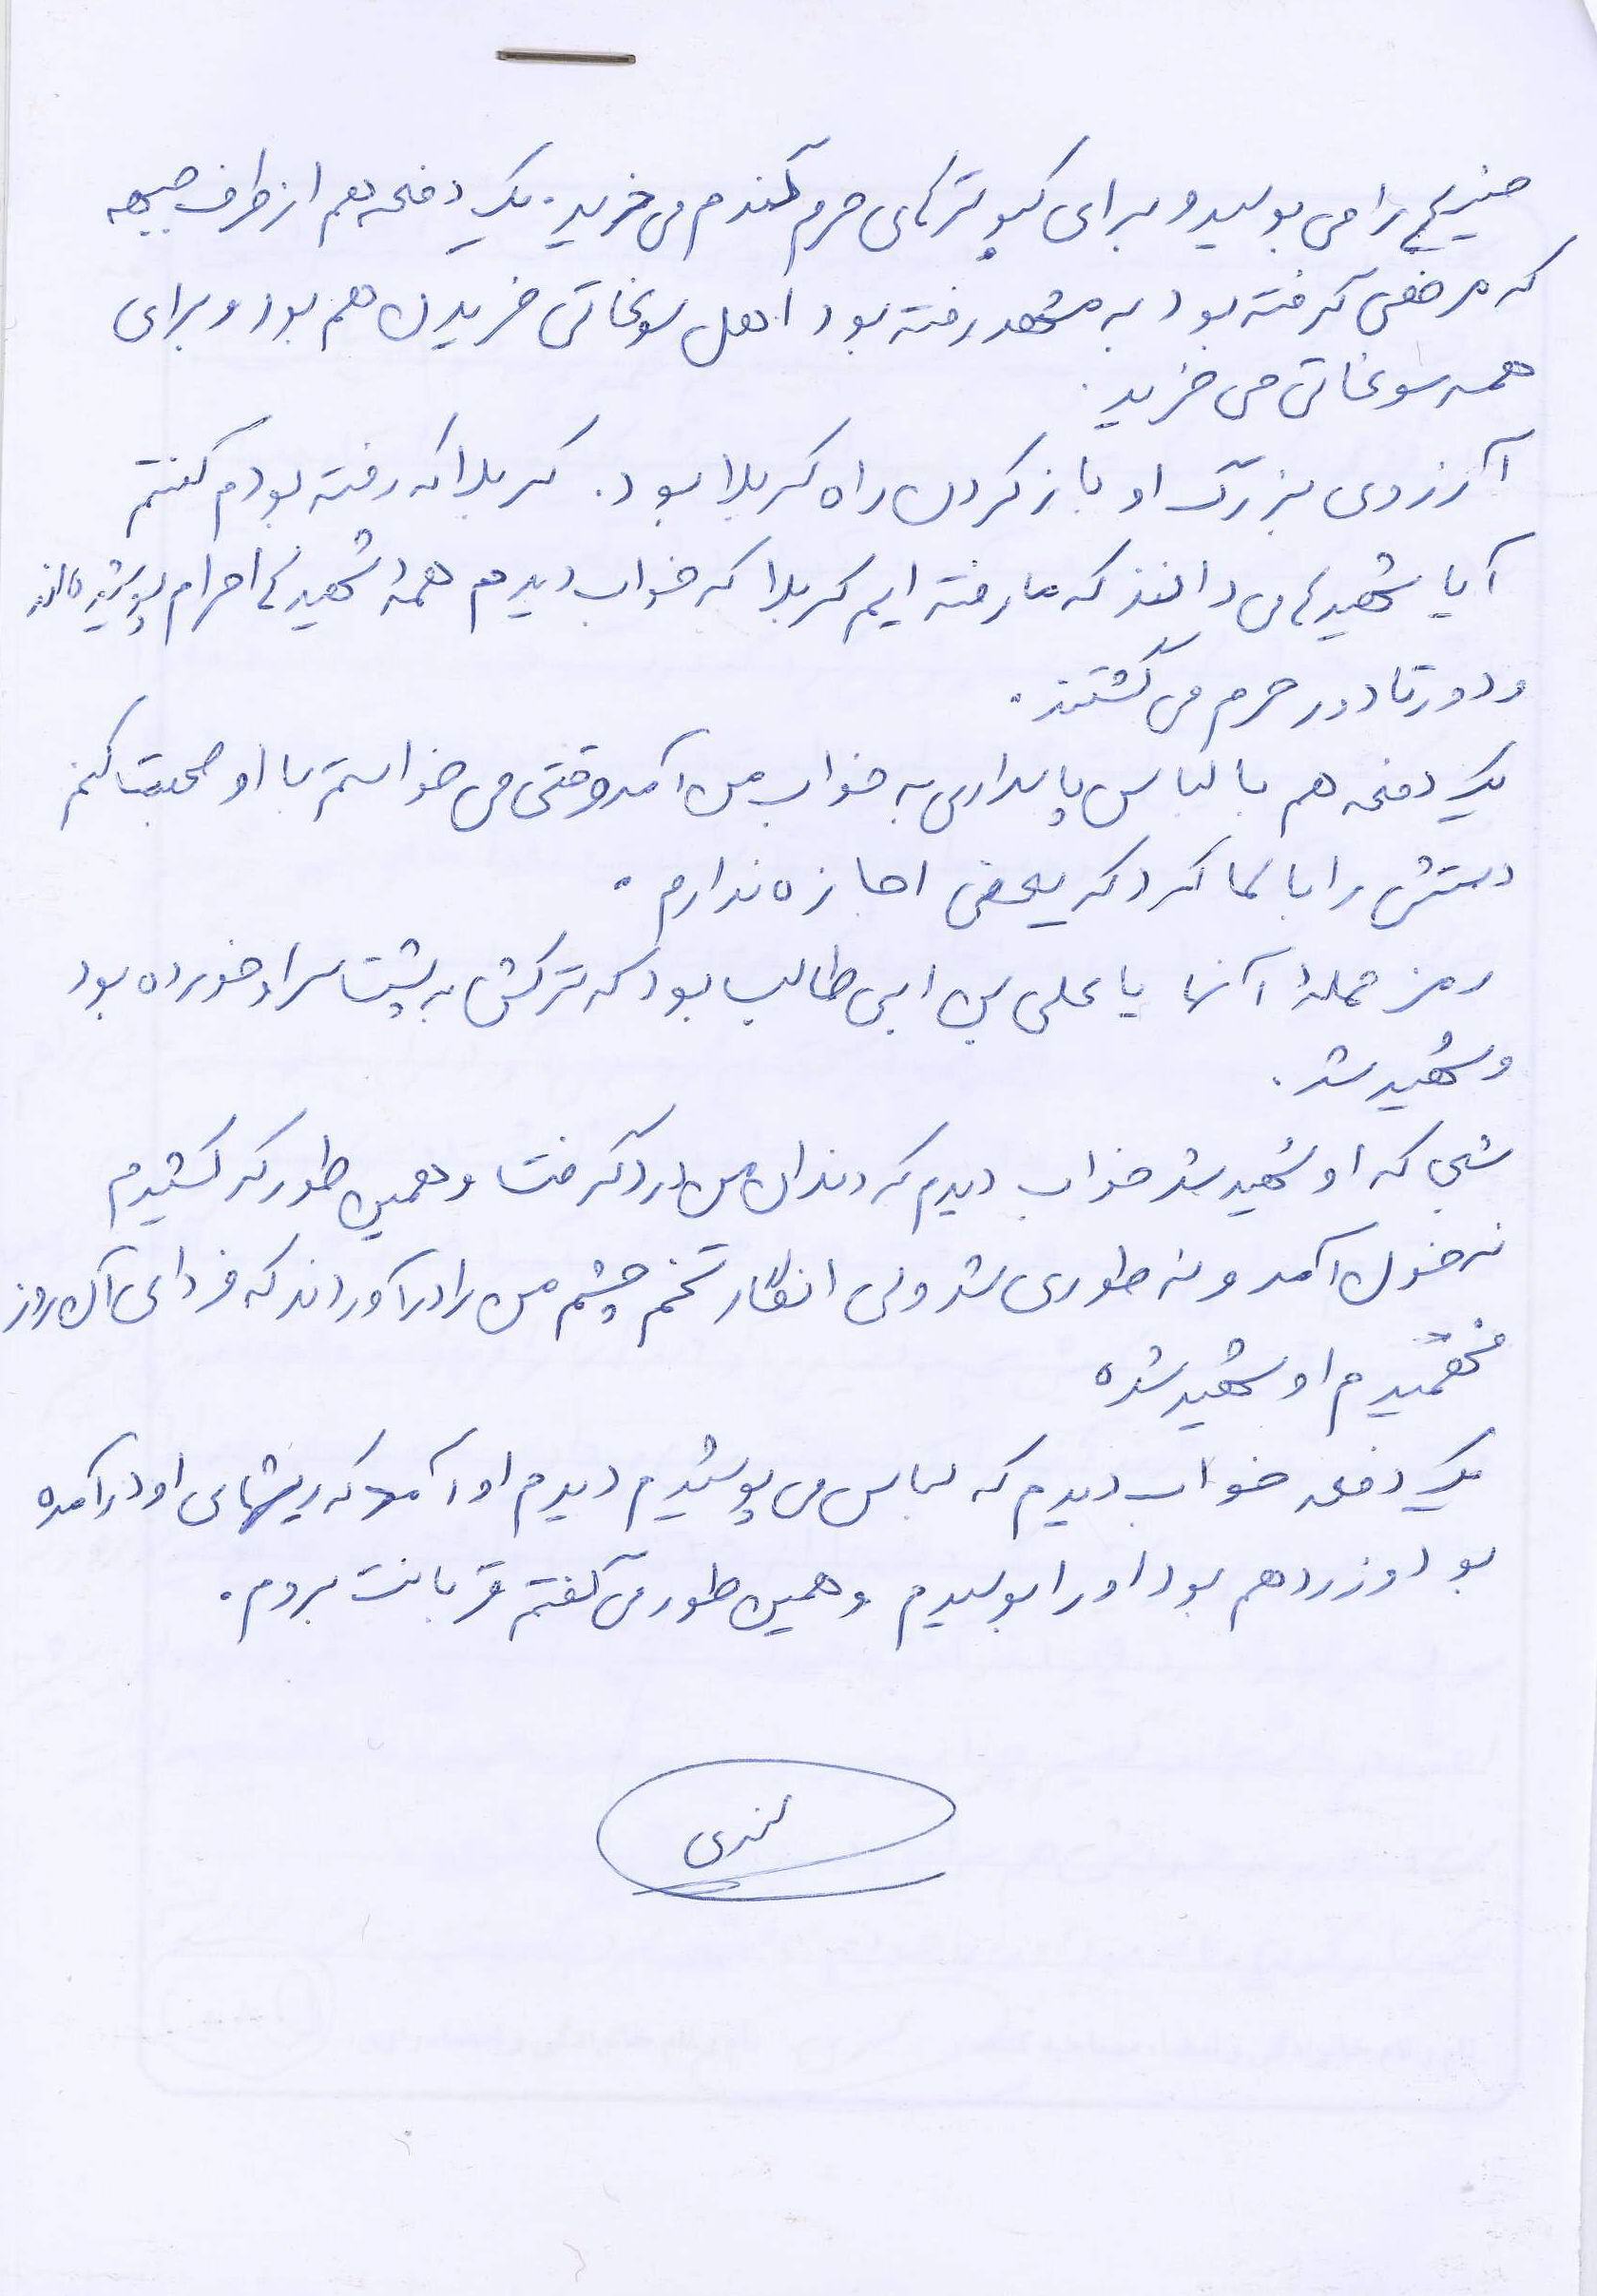 ضریح را می بوسید و برای کبوترهای حرم گندم می خرید. یک دفعه هم از طرف جبهه
که مرخصی گرفته بود به مشهد رفته بود اهل سوغاتی خریدن هم بود و برای
همه سوغاتی می خرید.
آرزوی بزرگ او باز کردن راه کربلا بود. کربلا که رفته بودم گفتم
آیا شهیدها می دانند که ما رفته ایم کربلا که خواب دیدم همه شهیدها احرام پوشیده اند
و دور تا دور حرم می گشتند.
یک دفعه هم با لباس پاسداری به خواب من آمد وقتی می خواستم با او صحبت کنم
دستش را بالا کرد که یعنی اجازه ندارم.
رمز حمله آنها یا علی بن ابی طالب بود که ترکش به پشت سر او خورده بود
و شهید شد.
شبی که او شهید شد خواب دیدم که دندان من درد گرفت و همین طور که کشیدم
نه خون آمد و نه طوری شد ولی انگار تخم چشم من را درآوردند که فردای آن روز
فهمیدم او شهید شده
یک دفعه خواب دیدم که لباس می پوشیدم دیدم او آمد که ریشهای او درآمده
بود و زرد هم بود او را بوسیدم و همین طور می گفتم قربانت بروم.